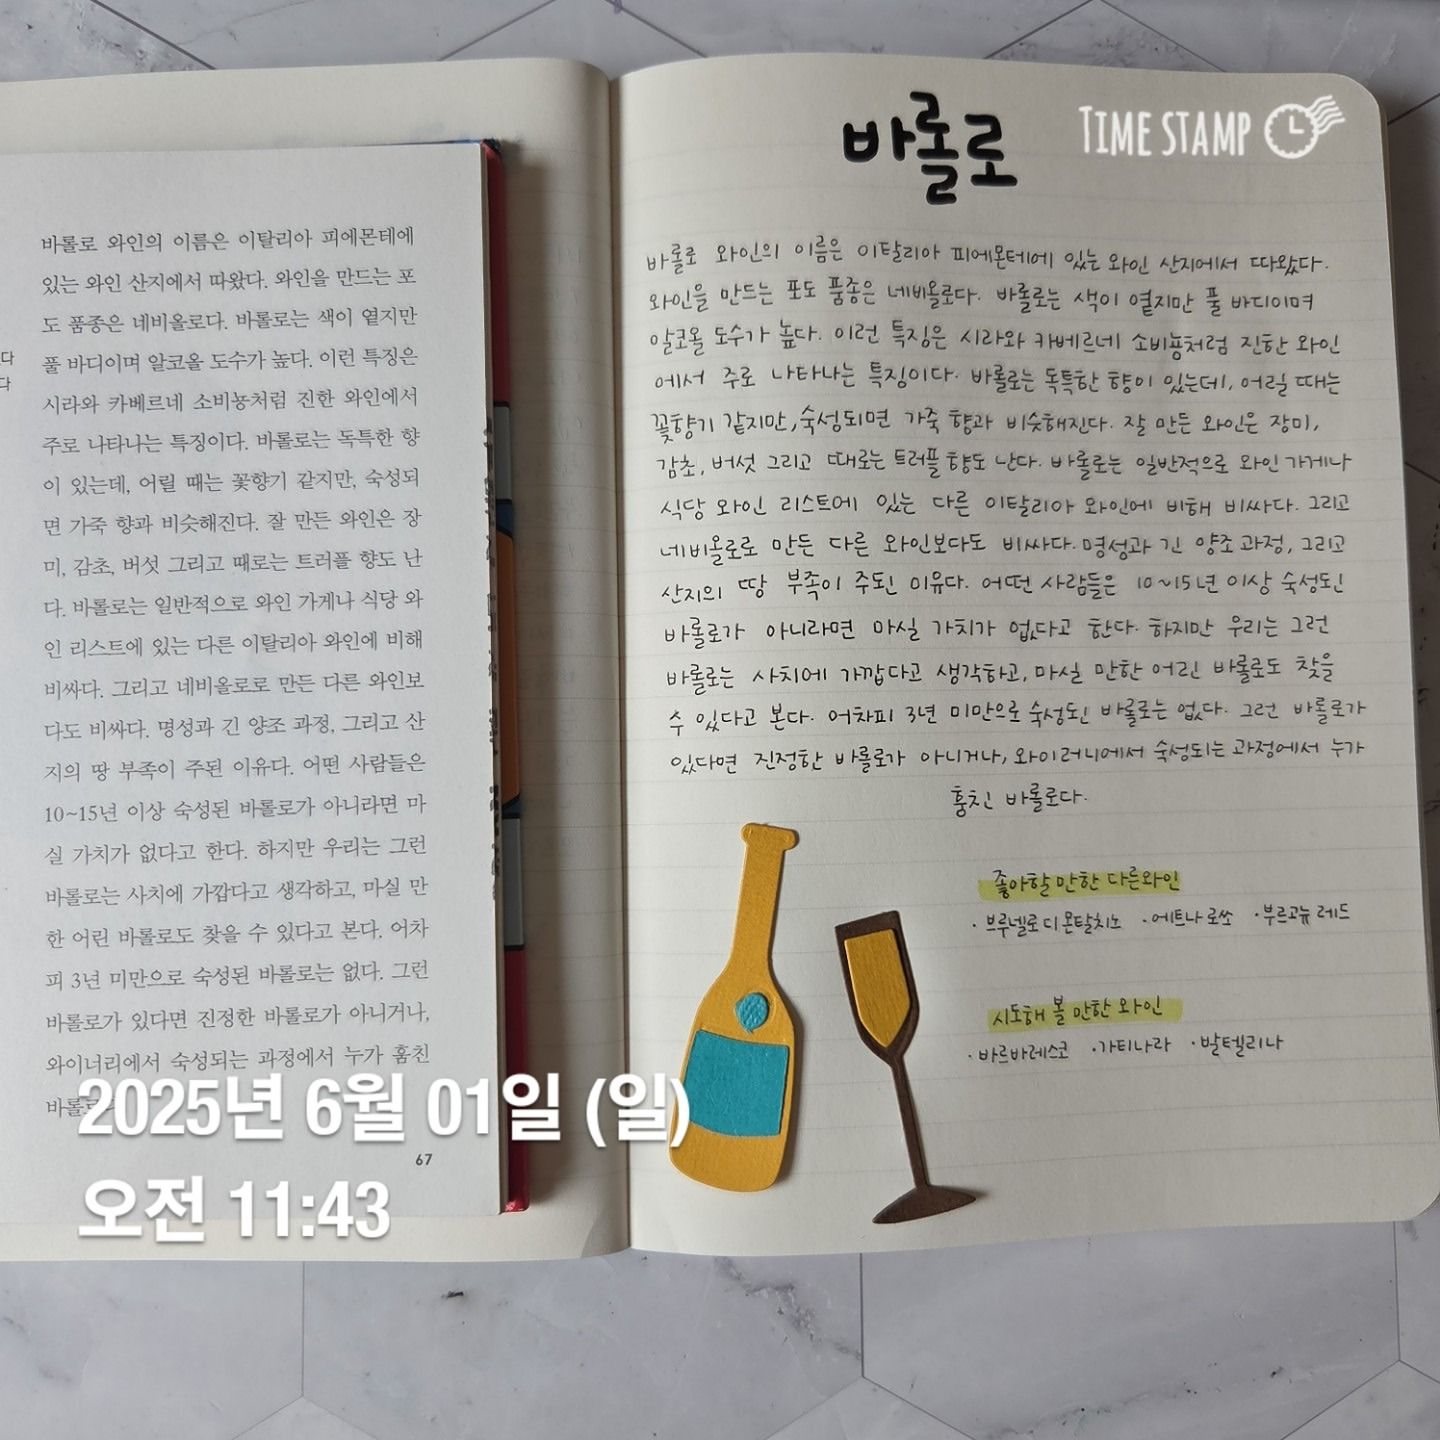 다
다
바롤로 와인의 이름은 이탈리아 피에몬테에
있는 와인 산지에서 따왔다. 와인을 만드는 포
도 품종은 네비올로다. 바롤로는 색이 옅지만
풀 바디이며 알코올 도수가 높다. 이런 특징은
시라와 카베르네 소비뇽처럼 진한 와인에서
주로 나타나는 특징이다. 바롤로는 독특한 향
이 있는데, 어릴 때는 꽃향기 같지만, 숙성되
면 가죽 향과 비슷해진다. 잘 만든 와인은 장
미, 감초, 버섯 그리고 때로는 트러플 향도 난
다. 바롤로는 일반적으로 와인 가게나 식당 와
인 리스트에 있는 다른 이탈리아 와인에 비해
비싸다. 그리고 네비올로로 만든 다른 와인보
다도 비싸다. 명성과 긴 양조 과정, 그리고 산
지의 땅 부족이 주된 이유다. 어떤 사람들은
10~15년 이상 숙성된 바롤로가 아니라면 마
실 가치가 없다고 한다. 하지만 우리는 그런
바롤로는 사치에 가깝다고 생각하고, 마실 만
한 어린 바롤로도 찾을 수 있다고 본다. 어차
피 3년 미만으로 숙성된 바롤로는 없다. 그런
바롤로가 있다면 진정한 바롤로가 아니거나,
와이너리에서 숙성되는 과정에서 누가 훔친
바롤
67
2025년 6월 01일 (일)
오전 11:43
TIME STAMP
바롤로
바롤로 와인의 이름은 이탈리아 피에몬테에 있는 와인 산지에서 따왔다.
와인을 만드는 포도 품종은 네비올로다. 바롤로는 색이 옅지만 풀 바디이며
알코올 도수가 높다. 이런 특징은 시라와 카베르네 소비뇽처럼 진한 와인
에서 주로 나타나는 특징이다. 바롤로는 독특한 향이 있는데, 어릴 때는
꽃향기 같지만, 숙성되면 가죽 향과 비슷해진다. 잘 만든 와인은 장미,
감초, 버섯 그리고 때로는 트러플 향도 난다. 바롤로는 일반적으로 와인 가게나
식당 와인 리스트에 있는 다른 이탈리아 와인에 비해 비싸다. 그리고
네비올로로 만든 다른 와인보다도 비싸다. 명성과 긴 양조 과정, 그리고
산지의 땅 부족이 주된 이유다. 어떤 사람들은 10~15년 이상 숙성된
바롤로가 아니라면 마실 가치가 없다고 한다. 하지만 우리는 그런
바롤로는 사치에 가깝다고 생각하고, 마실 만한 어린 바롤로도 찾을
수 있다고 본다. 어차피 3년 미만으로 숙성된 바롤로는 없다. 그런 바롤로가
있다면 진정한 바롤로가 아니거나, 와이러니에서 숙성되는 과정에서 누가
훔친 바롤로다.
좋아할 만한 다른와인
· 브루넬로 디 몬탈치노 · 에트나 로쏘 · 부르고뉴 레드
시도해 볼 만한 와인
· 바르바레스코 · 가티나라 · 발텔리나